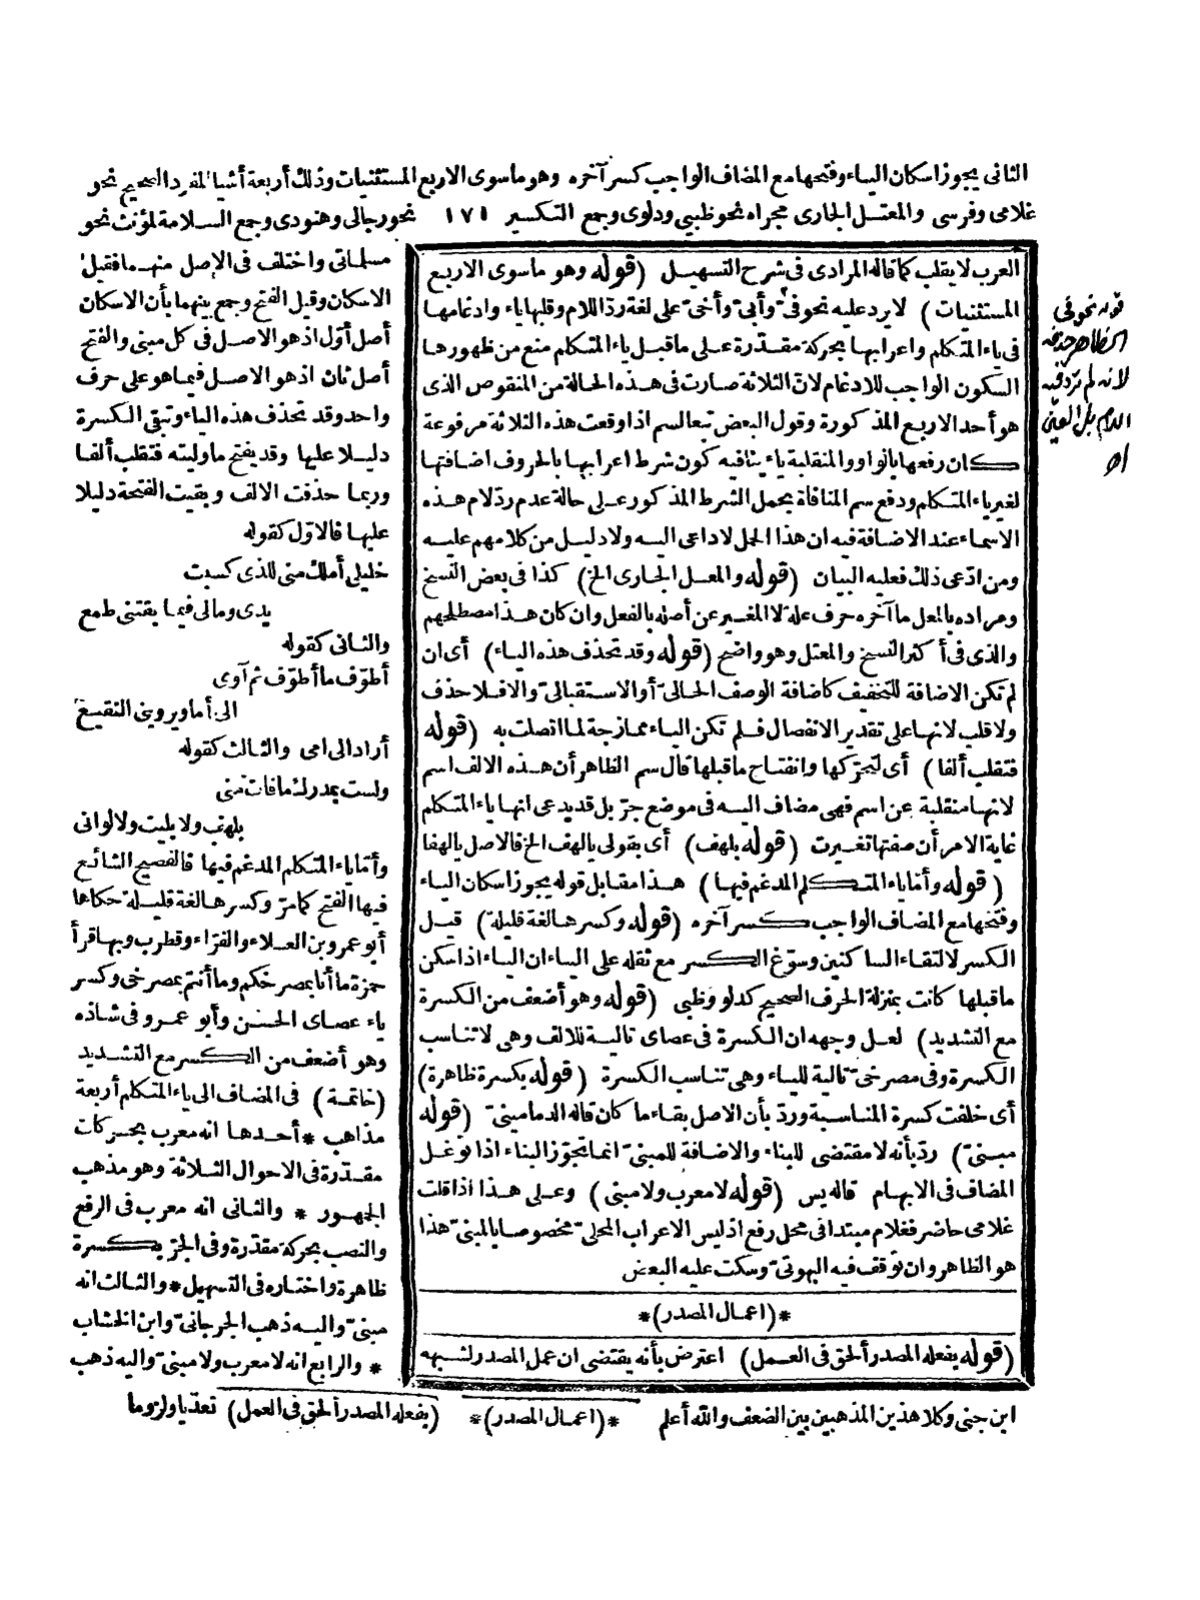 الثانى يجوز اسكان الياء وفتحها مع المضاف الواجب كسر آخره وهو ما سوى الاربع المستثنيات وذلك أربعة أشيا المفرد الصحيح نحو
غلامى وفرسى والمعتل الجارى مجراه نحو ظبيى ودلوى وجمع التكسير ١٧١ نحو رجالى وهنودى وجمع السلامة لمؤنث نحو
مسلماتى واختلف فى الاصل منهما فقيل
الاسكان وقيل الفتح وجمع بينهما بأن الاسكان
أصل أوّل اذ هو الاصل فى كل مبنى والفتح
أصل ثان اذ هو الاصل فيما هو على حرف
واحد وقد تحذف هذه الياء وتبقى الكسرة
دليلا عليها وقد يفتح ما وليته فتقلب ألفا
وربما حذفت الالف وبقيت الفتحة دليلا
عليها فالاوّل كقوله
خليلى أملك منى للذى كسبت
يدى ومالى فيما يقتنى طمع
والثانى كقوله
أطوّف ما أطوّف ثم آوى
الى أما ويروينى النقيع
أراد الى امى والثالث كقوله
ولست بمدرك ما فات منى
بلهف ولا بليت ولا لوانى
وأمّا ياء المتكلم المدغم فيها فالفصيح الشائع
فيها الفتح كما مرّ وكسرها لغة قليلة حكاها
أبو عمرو بن العلاء والفرّاء وقطرب وبها قرأ
حمزة ما أنا بمصرخكم وما أنتم بمصرخى وكسر
ياء عصاى الحسن وأبو عمرو فى شاذه
وهو أضعف من الكسر مع التشديد
(خاتمة) فى المضاف الى ياء المتكلم أربعة
مذاهب * أحدها انه معرب بحركات
مقدّرة فى الاحوال الثلاثة وهو مذهب
الجمهور * والثانى انه معرب فى الرفع
والنصب بحركة مقدّرة وفى الجرّ بكسرة
ظاهرة واختاره فى التسهيل * والثالث انه
مبنىّ واليه ذهب الجرجانىّ وابن الخشاب
* والرابع انه لا معرب ولا مبنىّ واليه ذهب
العرب لا يقلب كما قاله المرادى فى شرح التسهيل (قوله وهو ما سوى الاربع
المستثنيات) لا يرد عليه نحو فىّ وأبىّ وأخىّ على لغة ردّ اللام وقلبها ياء وادغامها
فى ياء المتكلم واعرابها بحركة مقدّرة على ما قبل ياء المتكلم منع من ظهورها
السكون الواجب للادغام لانّ الثلاثة صارت فى هذه الحالة من المنقوص الذى
هو أحد الاربع المذكورة وقول البعض تبعا لسم اذا وقعت هذه الثلاثة مرفوعة
كان رفعها بالواو والمنقلبة ياء ينافيه كون شرط اعرابها بالحروف اضافتها
لغير ياء المتكلم ودفع سم المنافاة بحمل الشرط المذكور على حالة عدم ردّ لام هذه
الاسماء عند الاضافة فيه ان هذا الحمل لا داعى اليه ولا دليل من كلامهم عليه
ومن ادّعى ذلك فعليه البيان (قوله والمعل الجارى الخ) كذا فى بعض النسخ
ومراده بالمعل ما آخره حرف علة لا المغير عن أصله بالفعل وان كان هذا مصطلحهم
والذى فى أكثر النسخ والمعتل وهو واضح (قوله وقد تحذف هذه الياء) أى ان
لم تكن الاضافة للتخفيف كاضافة الوصف الحالىّ أو الاستقبالىّ والا فلا حذف
ولا قلب لانها على تقدير الانفصال فلم تكن الياء ممازجة لما اتصلت به (قوله
فتقلب ألفا) أى لتحرّكها وانفتاح ما قبلها قال سم الظاهر أن هذه الالف اسم
لانها منقلبة عن اسم فهى مضاف اليه فى موضع جرّ بل قد يدعى انها ياء المتكلم
غاية الامر أن صفتها تغيرت (قوله بلهف) أى بقولى يا لهف الخ فالاصل يا لهفا
(قوله وأمّا ياء المتكلم المدغم فيها) هذا مقابل قوله يجوز اسكان الياء
وفتحها مع المضاف الواجب كسر آخره (قوله وكسرها لغة قليلة) قيل
الكسر لالتقاء الساكنين وسوّغ الكسر مع ثقله على الياء ان الياء اذا سكن
ما قبلها كانت بمنزلة الحرف الصحيح كدلو وظبى (قوله وهو أضعف من الكسرة
مع التشديد) لعل وجهه ان الكسرة فى عصاى تالية للالف وهى لا تناسب
الكسرة وفى مصرخىّ تالية للياء وهى تناسب الكسرة (قوله بكسرة ظاهرة)
أى خلفت كسرة المناسبة وردّ بأن الاصل بقاء ما كان قاله الدمامينىّ (قوله
مبنىّ) ردّ بأنه لا مقتضى للبناء والاضافة للمبنىّ انما تجوّز البناء اذا توغل
المضاف فى الابهام قاله يس (قوله لا معرب ولا مبنى) وعلى هذا اذا قلت
غلامى حاضر فغلام مبتدا فى محل رفع اذ ليس الاعراب المحلىّ مخصوصا بالمبنىّ هذا
هو الظاهر وان توقف فيه البهوتىّ وسكت عليه البعض
*(اعمال المصدر)*
(قوله بفعله المصدر ألحق فى العمل) اعترض بأنه يقتضى ان عمل المصدر لشبهه
قوله نحو فى
الظاهر حذفه
لانه لم ترد فيه
اللام بل العين
اه
ابن جنى وكلا هذين المذهبين بين الضعف والله أعلم *(اعمال المصدر)* (بفعله المصدر ألحق فى العمل) تعدّيا ولزوما